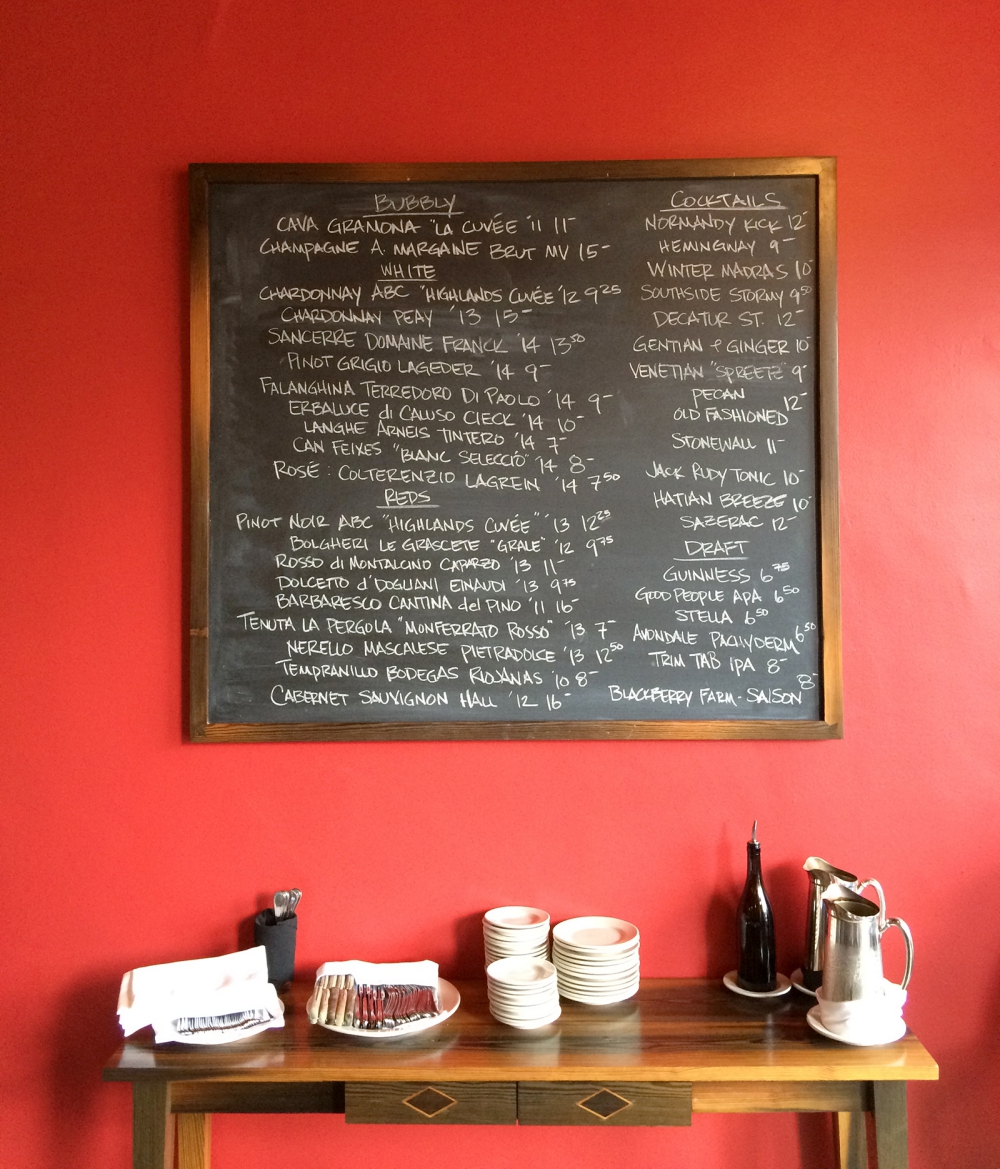 BUBBLY
CAVA GRAMONA "LA CUVÉE '11 11-
CHAMPAGNE A. MARGAINE BRUT MV 15-
WHITE
CHARDONNAY ABC "HIGHLANDS CUVÉE '12 9 25
CHARDONNAY PEAY '13 15-
SANCERRE DOMAINE FRANCK '14 13 50
PINOT GRIGIO LAGEDER '14 9-
FALANGHINA TERREDORO DI PAOLO '14 9-
ERBALUCE di CALUSO CIECK '14 10-
LANGHE ARNEIS TINTERO '14 7-
CAN FEIXES "BLANC SELECCIÓ" '14 8-
ROSÉ : COLTERENZIO LAGREIN '14 7 50
REDS
PINOT NOIR ABC "HIGHLANDS CUVÉE" '13 12 25
BOLGHERI LE GRASCETE "GRALE" '12 9 75
ROSSO di MONTALCINO CAPARZO '13 11-
DOLCETTO d'DOGLIANI EINAUDI '13 9 75
BARBARESCO CANTINA del PINO '11 16-
TENUTA LA PERGOLA "MONFERRATO ROSSO" '13 7-
NERELLO MASCALESE PIETRADOLCE '13 12 50
TEMPRANILLO BODEGAS RIOJANAS '10 8-
CABERNET SAUVIGNON HALL '12 16-
COCKTAILS
NORMANDY KICK 12-
HEMINGWAY 9-
WINTER MADRAS 10-
SOUTHSIDE STORMY 9 50
DECATUR ST. 12-
GENTIAN & GINGER 10-
VENETIAN "SPREETZ" 9-
PECAN
OLD FASHIONED 12-
STONEWALL 11-
JACK RUDY TONIC 10-
HATIAN BREEZE 10-
SAZERAC 12-
DRAFT
GUINNESS 6 75
GOOD PEOPLE APA 6 50
STELLA 6 50
AVONDALE PACHYDERM 6 50
TRIM TAB IPA 8-
BLACKBERRY FARM - SAISON 8-